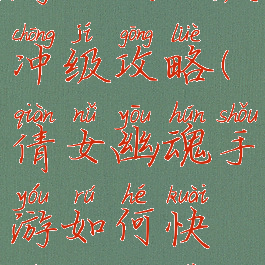 chōng jí gōng lüè
冲级攻略(
qiàn nǚ yōu hún shǒu
倩女幽魂手
yóu rú hé kuài
游如何快